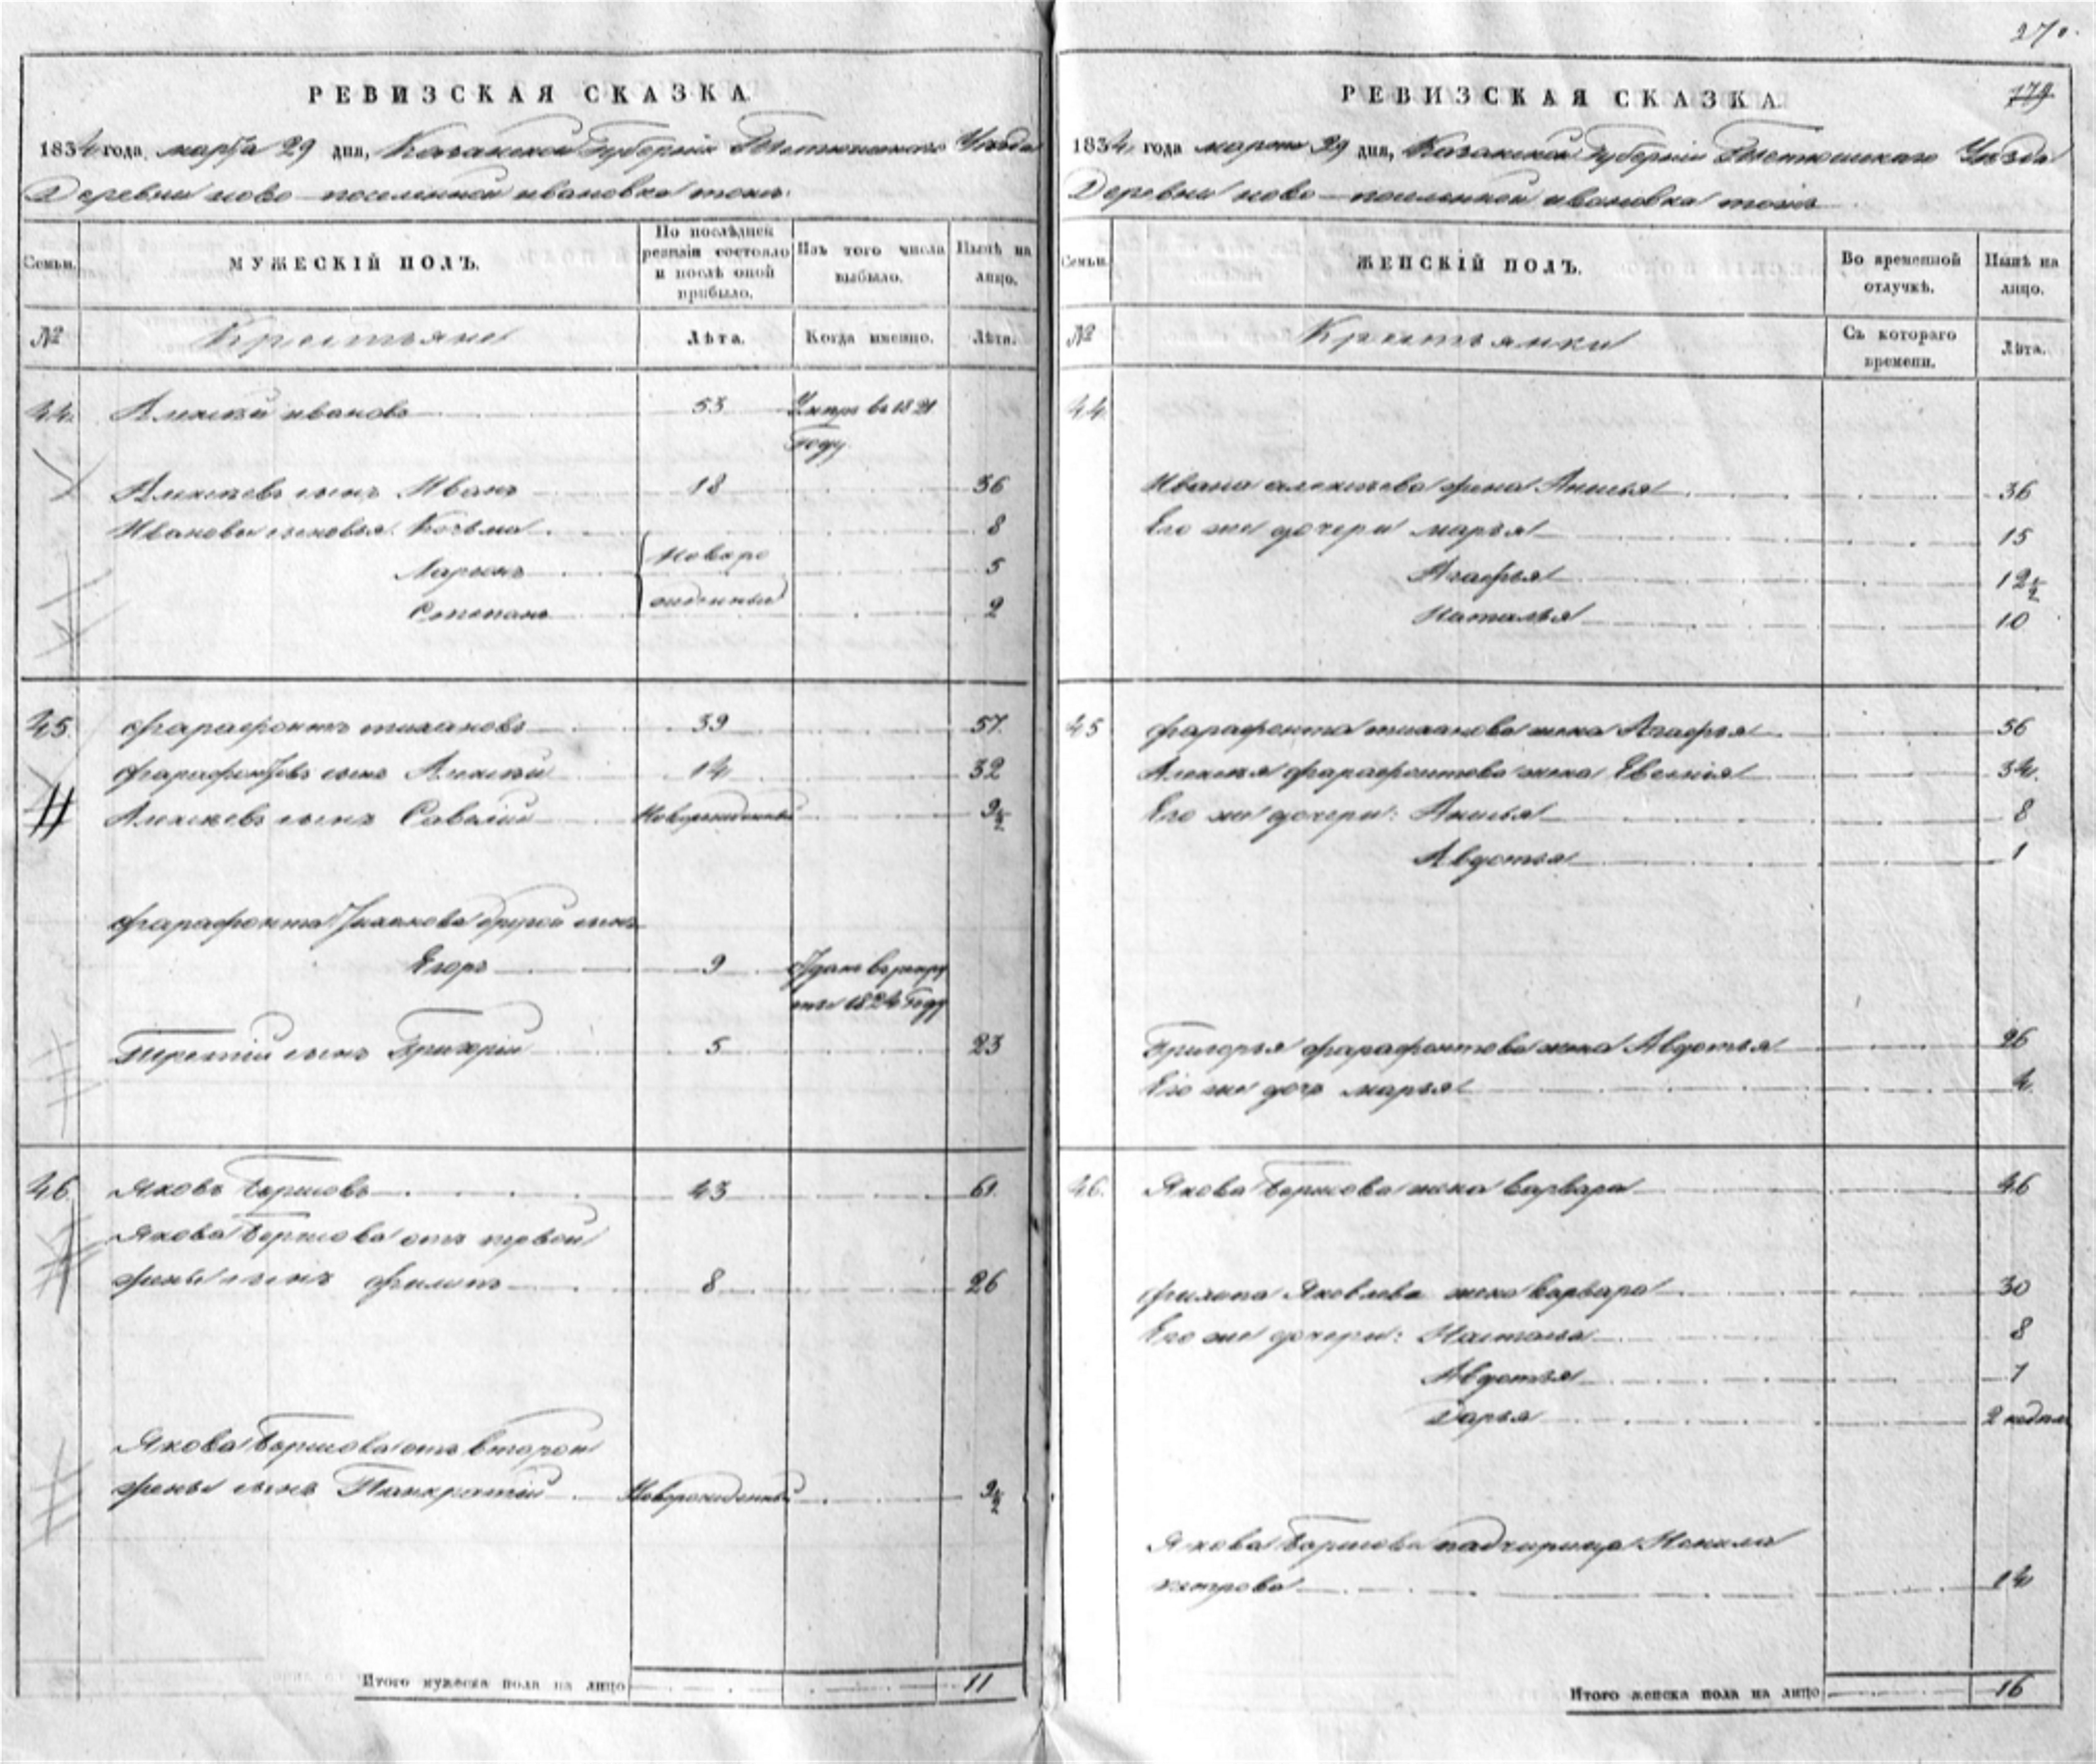 270.
РЕВИЗСКАЯ СКАЗКА.
1834 года, марта 29 дня, Казанской Губернии Тетюшскаго Уезда
Деревни ново-поселенной ивановка тожъ
Семьи.
МУЖЕСКІЙ ПОЛЪ.
По послѣдней ревизіи состояло и послѣ оной прибыло.
Изъ того числа выбыло.
Нынѣ на лицо.
№
Крестьяне
Лѣта.
Когда именно.
Лѣта.
44. Алексѣй ивановъ 53 Умре въ 1821
Году
Алексѣевъ сынъ Иванъ 18 36
Ивановы сыновья Козьма 8
Ларіонъ новоро 5
Степанъ жденные 2
45. фарафонтъ 39 57
фарафонтовъ сынъ Алексѣй 14 32
Алексѣевъ сынъ Савелій Новорожденный 9½
фарафонта другой сынъ
Егоръ 9 Зданъ въ рекру
ты 1824 Году
Третій сынъ Григорій 5 23
46. Яковъ Борисовъ 43 61
Якова Борисова отъ первой
жены сынъ филипъ 8 26
Якова Борисова отъ второй
жены сынъ Панкратій Новорожденный 9½
Итого мужеска пола на лицо 11
РЕВИЗСКАЯ СКАЗКА.
179
1834 года марта 29 дня, Казанской Губернии Тетюшскаго Уезда
Деревни ново-поселенной ивановка тожъ
Семьи.
ЖЕНСКІЙ ПОЛЪ.
Во временной отлучкѣ.
Нынѣ на лицо.
№
Крестьянки
Съ котораго времени.
Лѣта.
44.
Ивана алексѣева жена Анисья 36
Его же дочери марья 15
Агафья 12½
Наталья 10
45 фарафонта жена Агафья 56
Алексѣя фарафонтова жена 34
Его же дочери: Анисья 8
Авдотья 1
Григорья фарафонтова жена Авдотья 26
Его же дочь марья 4
46. Якова Борисова жена варвара 46
филипа Яковлева жена варвара 30
Его же дочери: 8
Авдотья
Дарья 2 недели
Якова Борисова падчирица Ненила
петрова 14
Итого женска пола на лицо 16